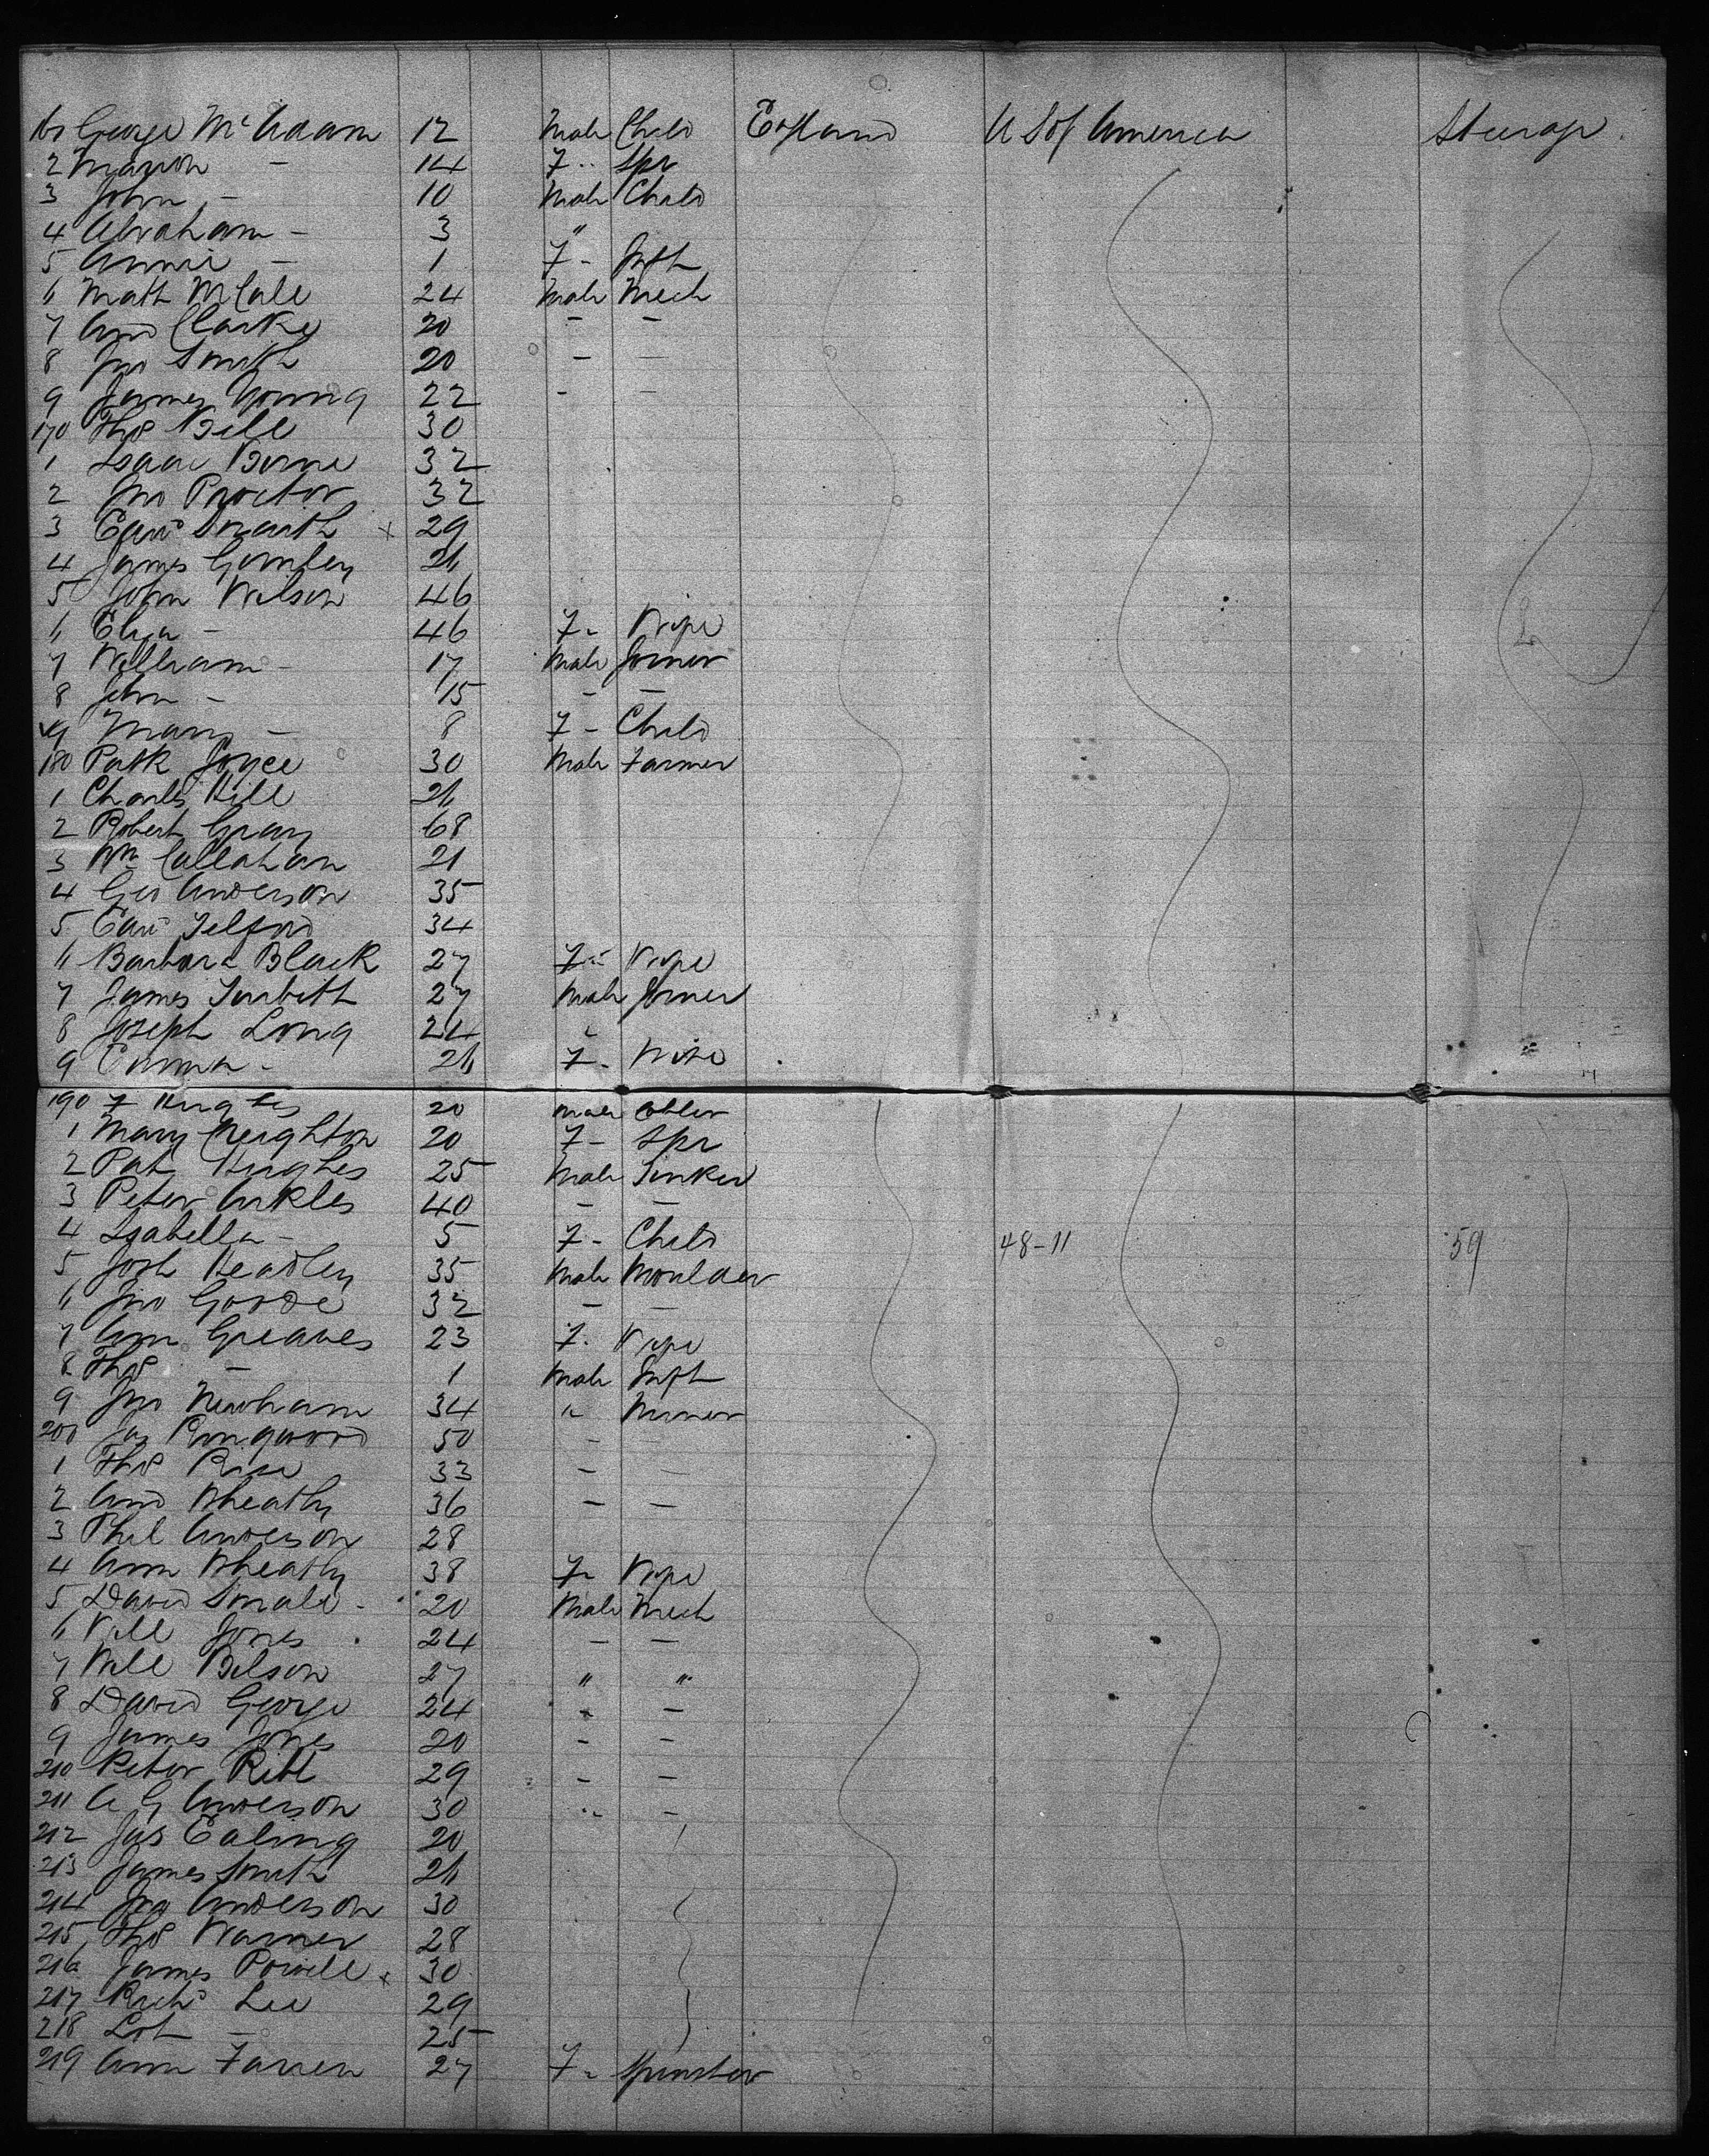 161 George McAdam 12 Male Child England U S of America Steerage
2 Marion - 14 F " Spr
3 John - 10 Male Child
4 Abraham - 3 "
5 Annie - 1 F - Inft
6 Matt McCale 24 Male Mech
7 And Clarke 20 - -
8 Jno Smith 20 - -
9 James Young 22 - -
170 Thos Bell 30
1 Isaac 32
2 Jno Proctor 32
3 Edwd Smith x 29
4 James 26
5 John Wilson 46
6 Eliza - 46 F - Wife
7 William - 17 Male Joiner
8 John - 15 - -
9 Mary - 8 F - Child
180 Patk Joyce 30 Male Farmer
1 Charles Hill 26
2 Robert Gray 68
3 Wm Callahan 21
4 Geo Anderson 35
5 Edwd Telford 34
6 Barbara Black 27 F - Wife
7 James 27 Male Joiner
8 Joseph Long 24 "
9 Emma - 26 F - Wife
190 F Hughes 20 Male
1 Mary Creighton 20 F - Spr
2 Pat Hughes 25 Male Tinker
3 Peter Arkles 40 - -
4 Isabella - 5 F - Child 48-11 59
5 Josh Headley 35 Male Moulder
6 Jno Goode 32 - -
7 Ann Greaves 23 F - Wife
8 Thos - 1 Male Inft
9 Jno Newham 34 " Miner
200 Jas Ringwood 50 -
1 Thos 33 - -
2 And Wheatly 36 - -
3 Phil Anderson 28
4 Ann Wheatly 38 F - Wife
5 David Smale - 20 Male Mech
6 Will Jones 24 - -
7 Will Bilson 27 " "
8 David George 24 " -
9 James Jones 20 - -
210 Peter 29 - -
211 A G Anderson 30 " -
212 Jas Ealing 20
213 James Smith 26
214 Jno Anderson 30
215 Thos Warner 28
216 James Powell x 30
217 Richd Lee 29
218 Lot - 25
219 Ann Farren 27 F - Spinster